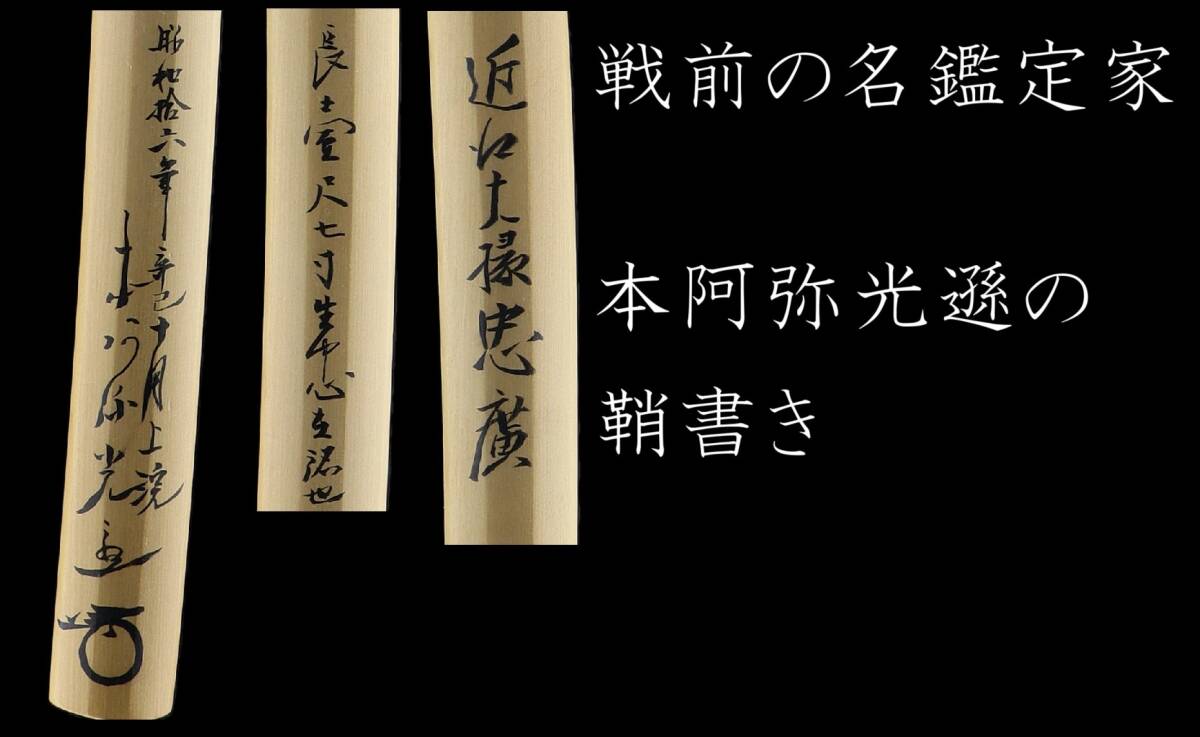 戦前の名鑑定家
本阿弥光遜の
鞘書き
近江大掾忠廣
長サ壹尺七寸生中心在銘也
昭和拾六年辛巳十月上浣
本阿弥光遜